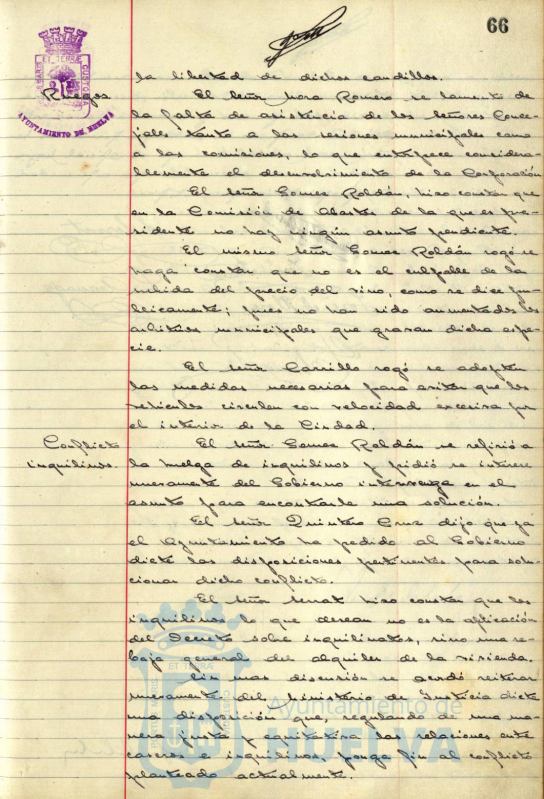 66
la libertad de dichos caudillos.
Ruegos. El Señor Mora Romero se lamentó de
la falta de asistencia de los Señores Conce-
jales tanto a las sesiones municipales como
a las comisiones, lo que entorpece considera-
blemente el desenvolvimiento de la Corporación
El Señor Gomez Roldán, hizo constar que
en la Comisión de Abastos de la que es pre-
sidente no hay ningún asunto pendiente.
El mismo Señor Gomez Roldán rogó se
haga constar que no es el culpable de la
subida del precio del vino, como se dice pu-
blicamente; pues no han sido aumentados los
arbitrios municipales que gravan dicha espe-
cie.
El Señor Carrillo rogó se adopten
las medidas necesarias para evitar que los
vehículos circulen con velocidad excesiva por
el interior de la Ciudad.
Conflicto El Señor Gomez Roldán se refirió a
inquilinos. la huelga de inquilinos y pidió se interese
nuevamente del Gobierno intervenga en el
asunto para encontrarle una solución.
El Señor Quintero Cruz dijo que ya
el Ayuntamiento ha pedido al Gobierno
dicte las disposiciones pertinentes para solu-
cionar dicho conflicto.
El Señor hizo constar que los
inquilinos lo que desean no es la aplicación
del Decreto sobre inquilinatos, sino una re-
baja general del alquiler de la vivienda.
Sin mas discusión se acordó reiterar
nuevamente del Ministerio de Justicia dicte
una disposición que, regulando de una ma-
nera justa y equitativa las relaciones entre
caseros e inquilinos, ponga fin al conflicto
planteado actualmente.
AYUNTAMIENTO DE HUELVA
Ayuntamiento de
HUELVA